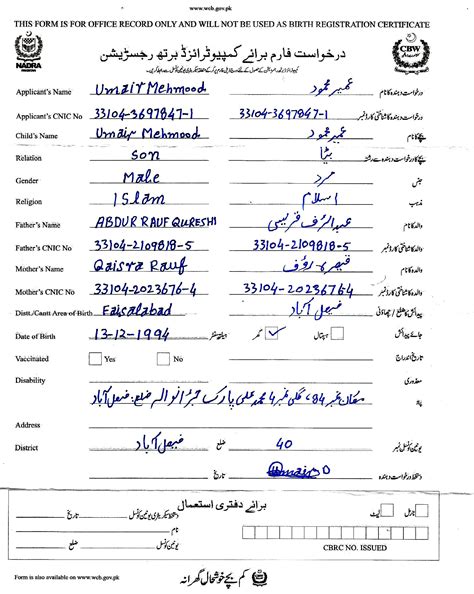 www.wcb.gov.pk
THIS FORM IS FOR OFFICE RECORD ONLY AND WILL NOT BE USED AS BIRTH REGISTRATION CERTIFICATE
NADRA
PAKISTAN
درخواست فارم برائے کمپیوٹرائزڈ برتھ رجسٹریشن
CBW
Applicant's Name Umair Mehmood عمیر محمود درخواست دہندہ کا نام
Applicant's CNIC No 33104-3697847-1 33104-3697847-1 درخواست دہندہ کا شناختی کارڈ نمبر
Child's Name Umair Mehmood عمیر محمود بچے کا نام
Relation Son بیٹا بچے کا درخواست دہندہ سے رشتہ
Gender Male مرد جنس
Religion Islam اسلام مذہب
Father's Name ABDUR RAUF QURESHI عبدالرؤف قریشی والد کا نام
Father's CNIC No 33104-2109818-5 33104-2109818-5 والد کا شناختی کارڈ نمبر
Mother's Name Qaisra Rauf قیصرہ رؤف والدہ کا نام
Mother's CNIC No 33104-2023676-4 33104-2023676-4 والدہ کا شناختی کارڈ نمبر
Distt./Cantt Area of Birth Faisalabad فیصل آباد پیدائش کا ضلع / چھاؤنی
Date of Birth 13-12-1994 گھر ✓ ہسپتال جائے پیدائش
Vaccinated Yes No تاریخ اندراج
Disability معذوری
مکان نمبر 84، گلی نمبر 4 محمد علی پارک جڑانوالہ ضلع: فیصل آباد پتہ
Address
District فیصل آباد ضلع 40 یونین کونسل نمبر
تاریخ Umair دستخط درخواست دہندہ
برائے دفتری استعمال
تاریخ دستخط سیکریٹری یونین کونسل لیٹ نارمل
نام
یونین کونسل CBRC NO. ISSUED
Form is also available on www.wcb.gov.pk کم بچے خوشحال گھرانہ